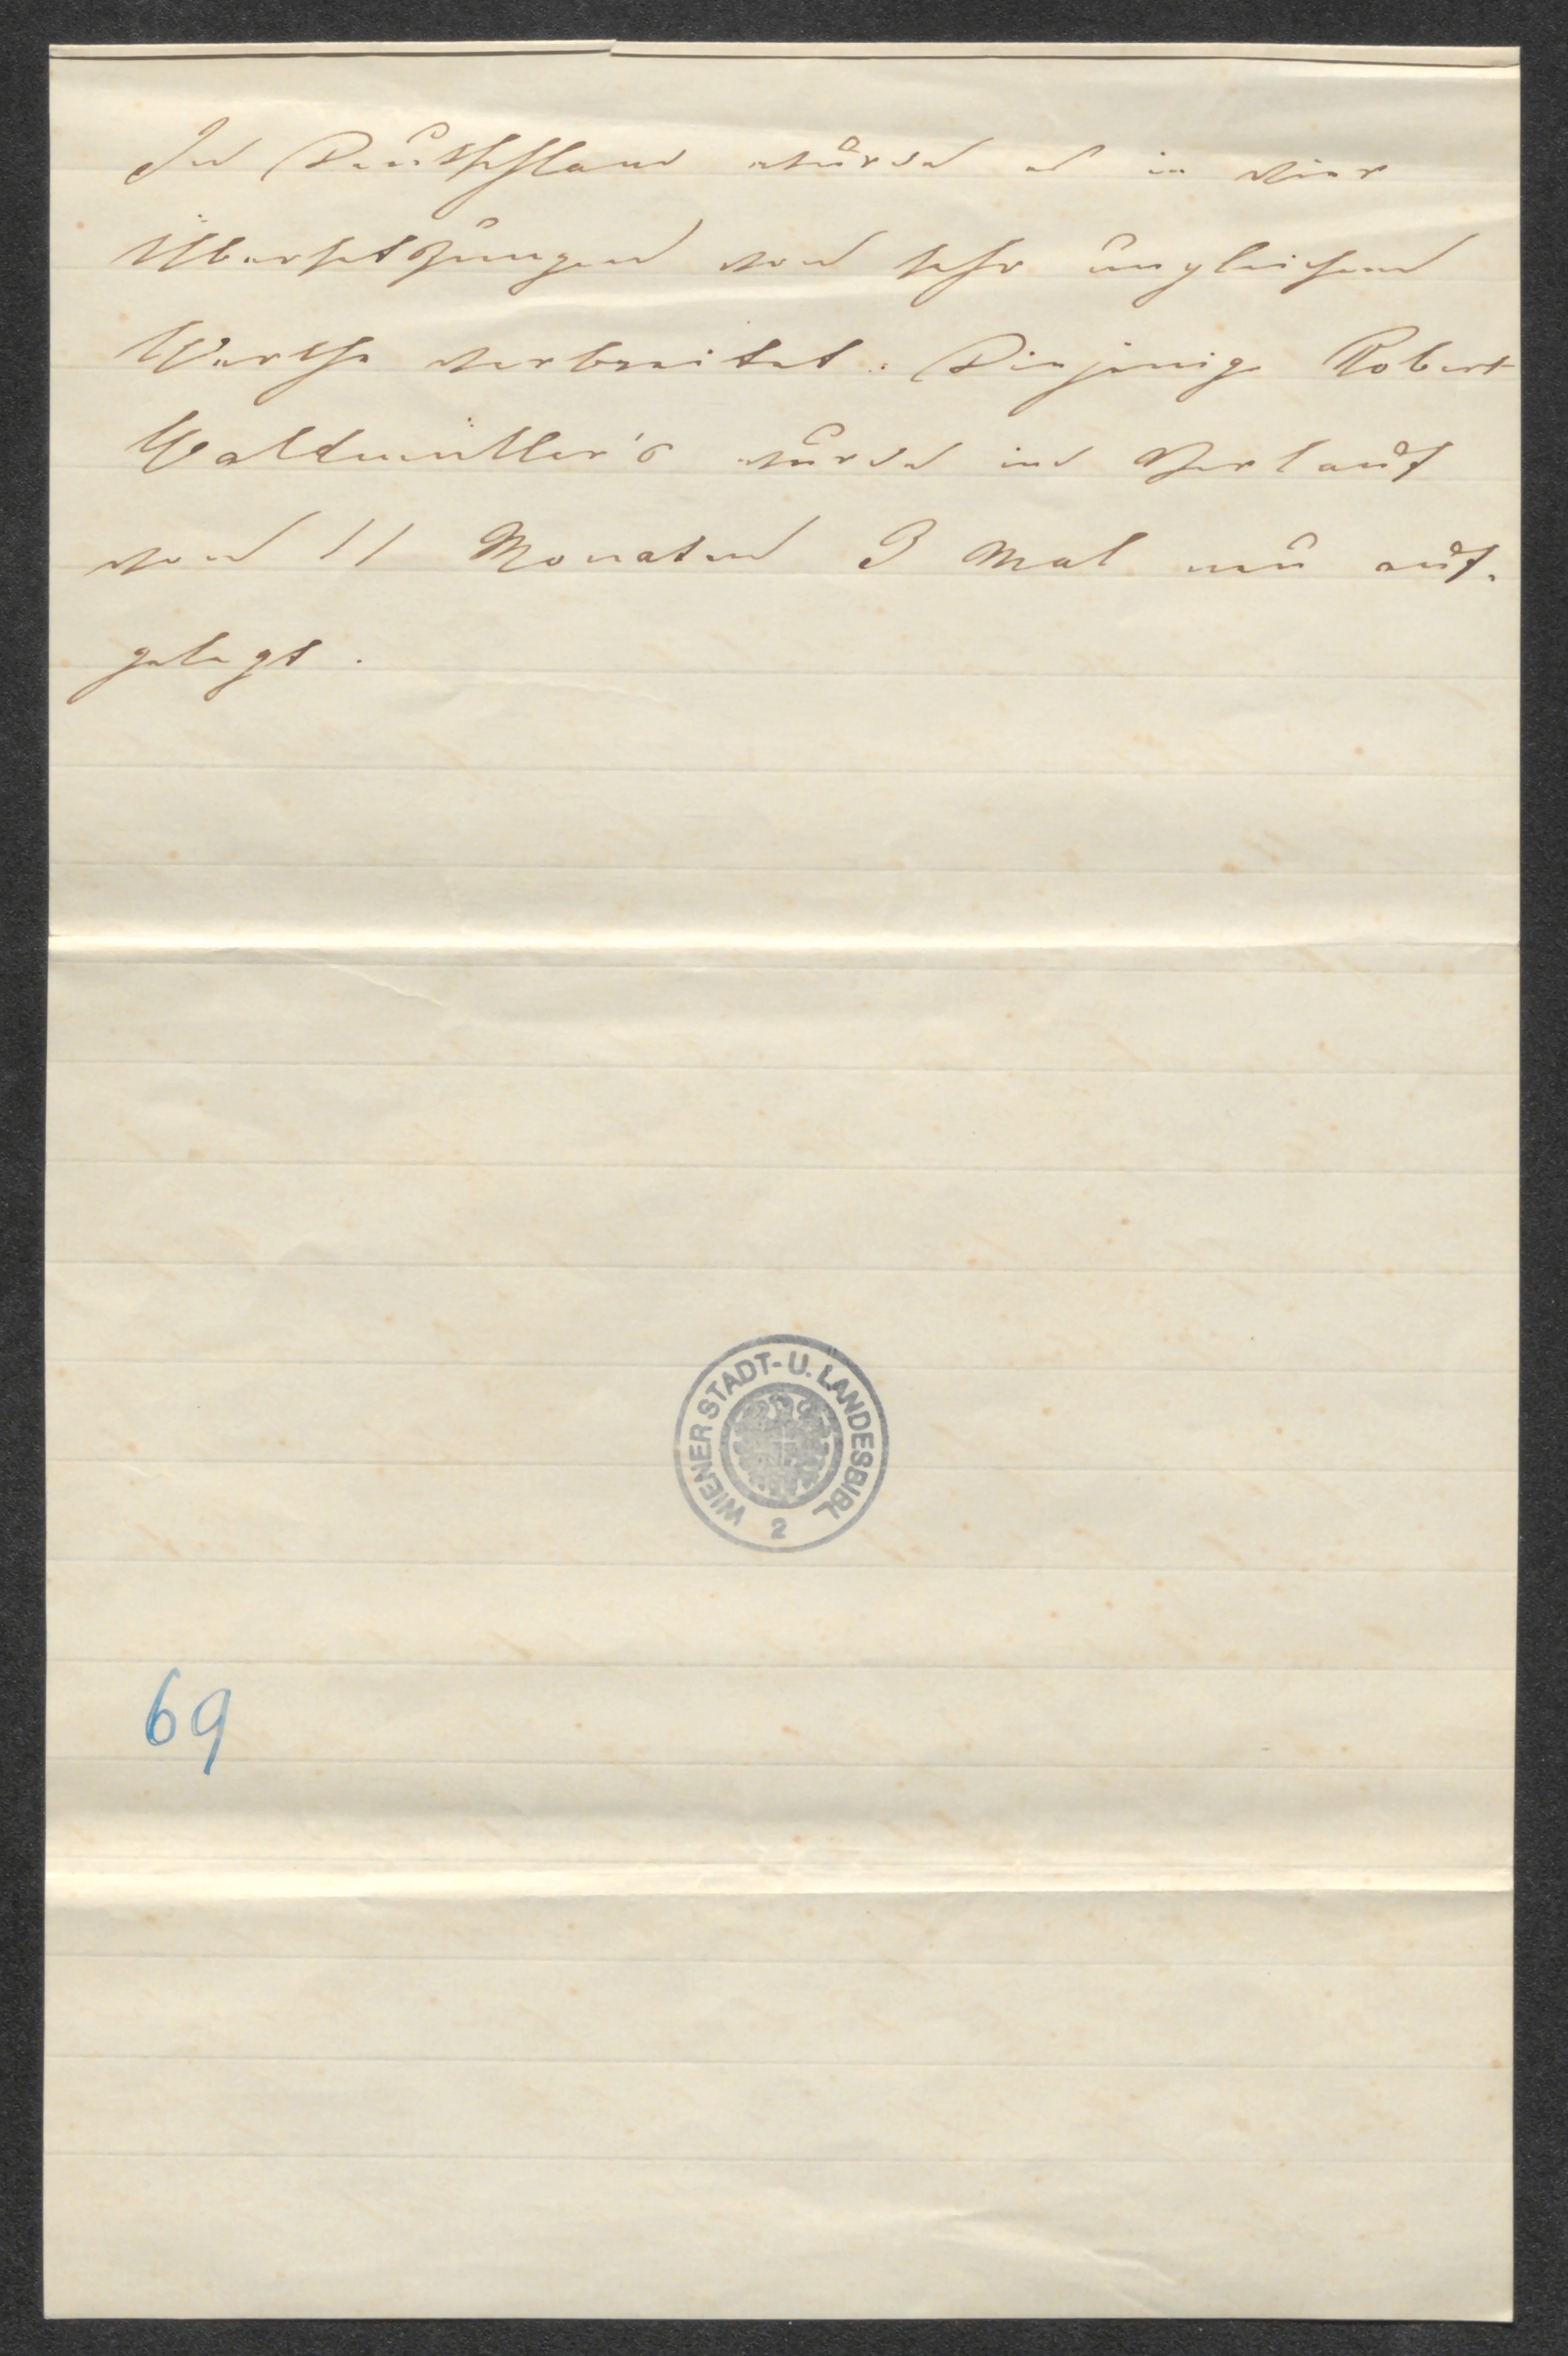 In Deutschland wurde es in vier
Übersetzungen von sehr ungleichem
Werthe verbreitet. Diejenige Robert
Waldmüller's wurde im Verlauf
von 11 Monaten 3 Mal neu auf-
gelegt.
WIENER STADT- U. LANDESBIBL
2
69